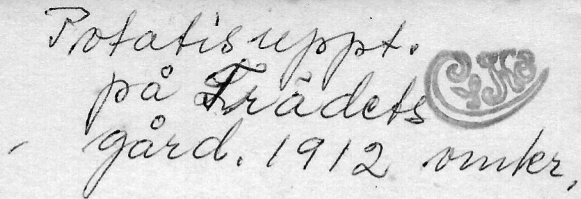 Potatisuppt.
på Trädets
gård. 1912 omkr.